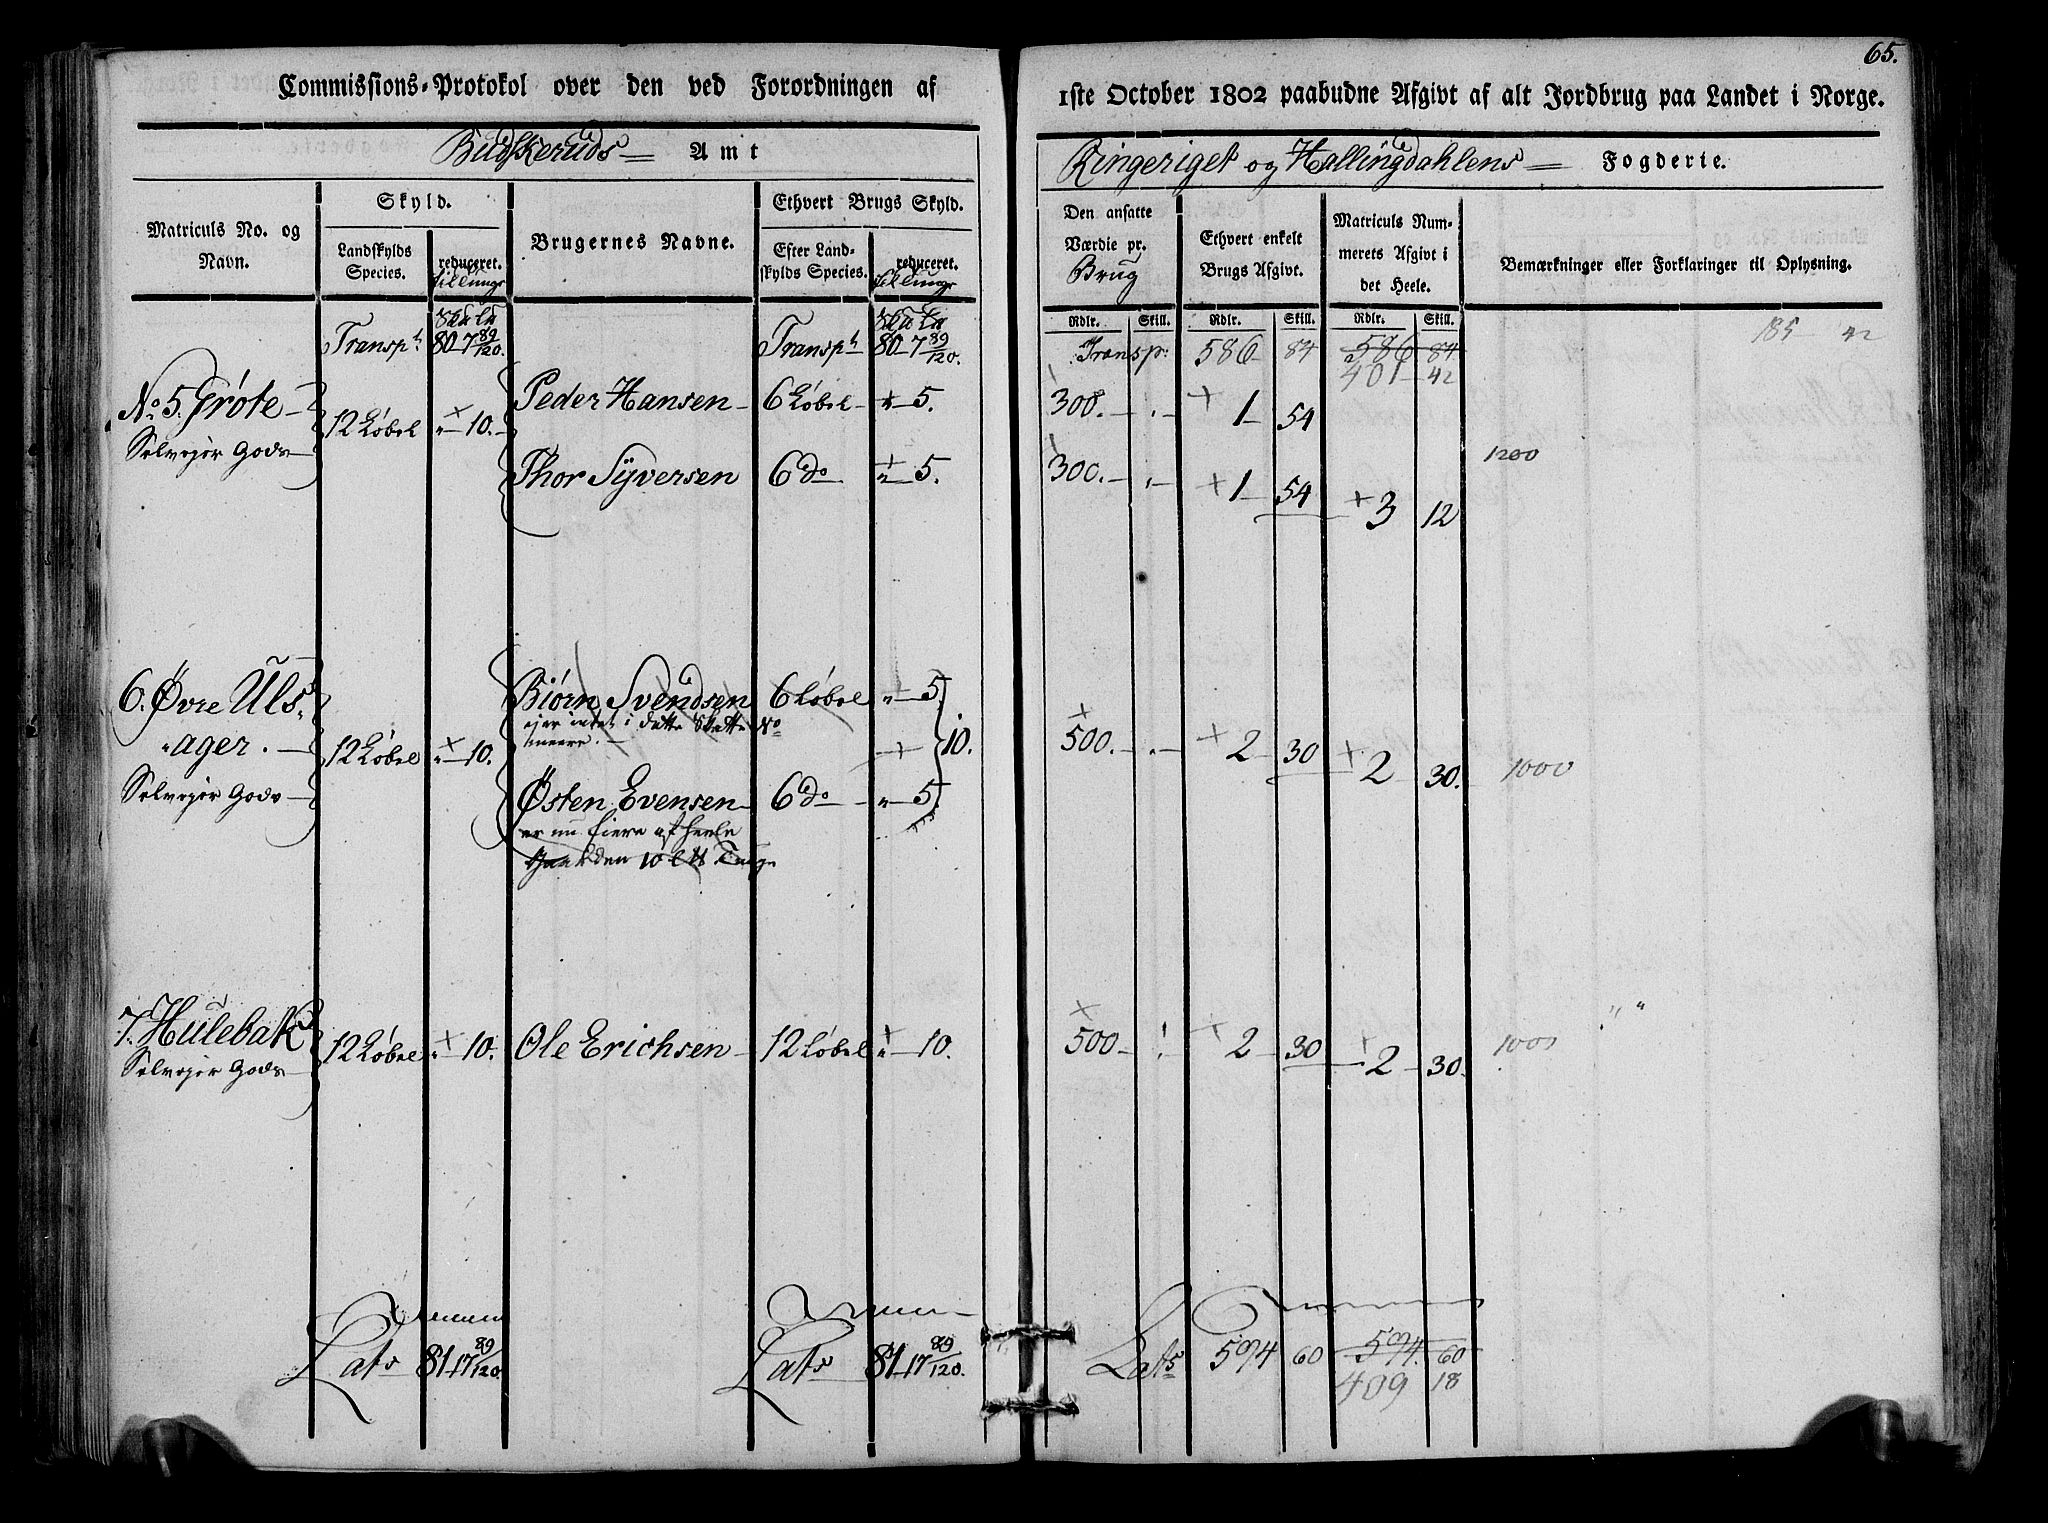 65.
Commissions-Protokol over den ved Forordningen af
1ste October 1802 paabudne Afgivt af alt Jordbrug paa Landet i Norge.
Budskeruds Amt
Ringeriget og Hallingdahlens Fogderie.
Matriculs No. og Navn.
Skyld.
Landskylds Species.
reduceret.
Brugernes Navne.
Ethvert Brugs Skyld.
Efter Landskylds Species.
reduceret.
Den ansatte Værdie pr. Brug
Ethvert enkelt Brugs Afgivt.
Matriculs Nummerets Afgivt i det Heele.
Bemærkninger eller Forklaringer til Oplysning.
Rdlr. Skill. Rdlr. Skill. Rdlr. Skill.
Transpt 80 - 7 89/120. Transpt 80 - 7 89/120. Transp: 586 84 586 84 185 42
401 - 42
No 5. Grøte 12 Løbel 10. Peder Hansen 6 Løbel 5. 300. 1 54
Selvejer Gods Thor Syversen 6 do 5. 300. 1 54 3 12 1200
6. Øvre Uls- Biørn Svendsen 6 Løbel 5.
ejer intet i dette No
meere.
ager. 12 Løbel 10. 10. 500. 2 30 2 30. 1000
Selvejer Gods Østen Evensen 6 do 5.
er nu Eiere af heele
Gaarden 10
7. Hulebak 12 Løbel 10. Ole Erichsen 12 Løbel 10. 500 2 30 2 30. 1000 " "
Selvejer Gods
Lats 81 - 17 89/120. Lats 81 - 17 89/120. Lats 594 60 594. 60
409 18